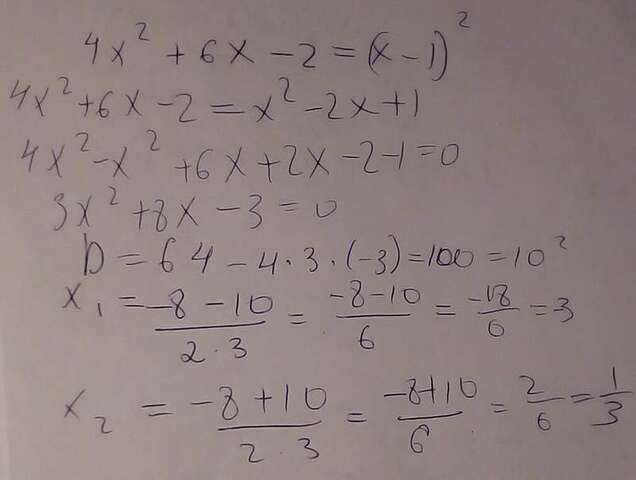 4x² + 6x - 2 = (x - 1)²
4x² + 6x - 2 = x² - 2x + 1
4x² - x² + 6x + 2x - 2 - 1 = 0
3x² + 8x - 3 = 0
D = 64 - 4 · 3 · (-3) = 100 = 10²
x₁ = (-8 - 10)/(2 · 3) = (-8 - 10)/6 = -18/6 = -3
x₂ = (-8 + 10)/(2 · 3) = (-8 + 10)/6 = 2/6 = 1/3